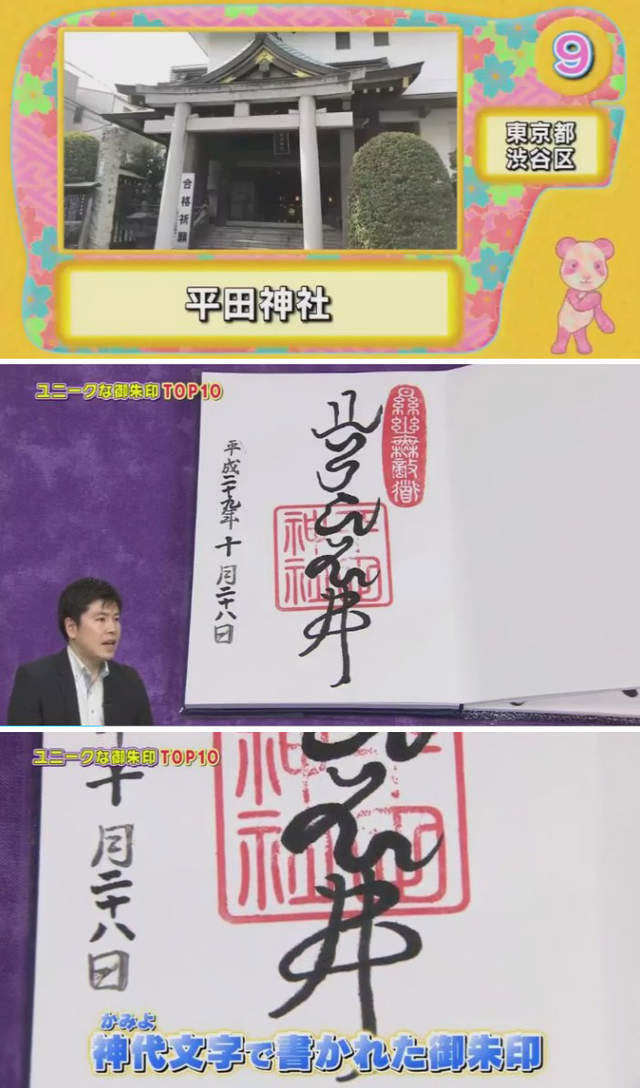 9
東京都
渋谷区
合格祈願
平田神社
ユニークな御朱印TOP10
平成二十九年十月二十八日
平田
神社
ユニークな御朱印TOP10
十月二十八日
かみよ
神代文字で書かれた御朱印